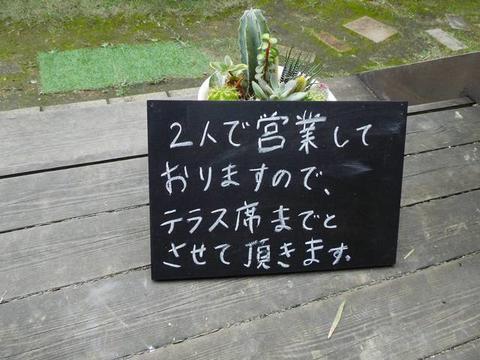 2人で営業して
おりますので、
テラス席までと
させて頂きます.